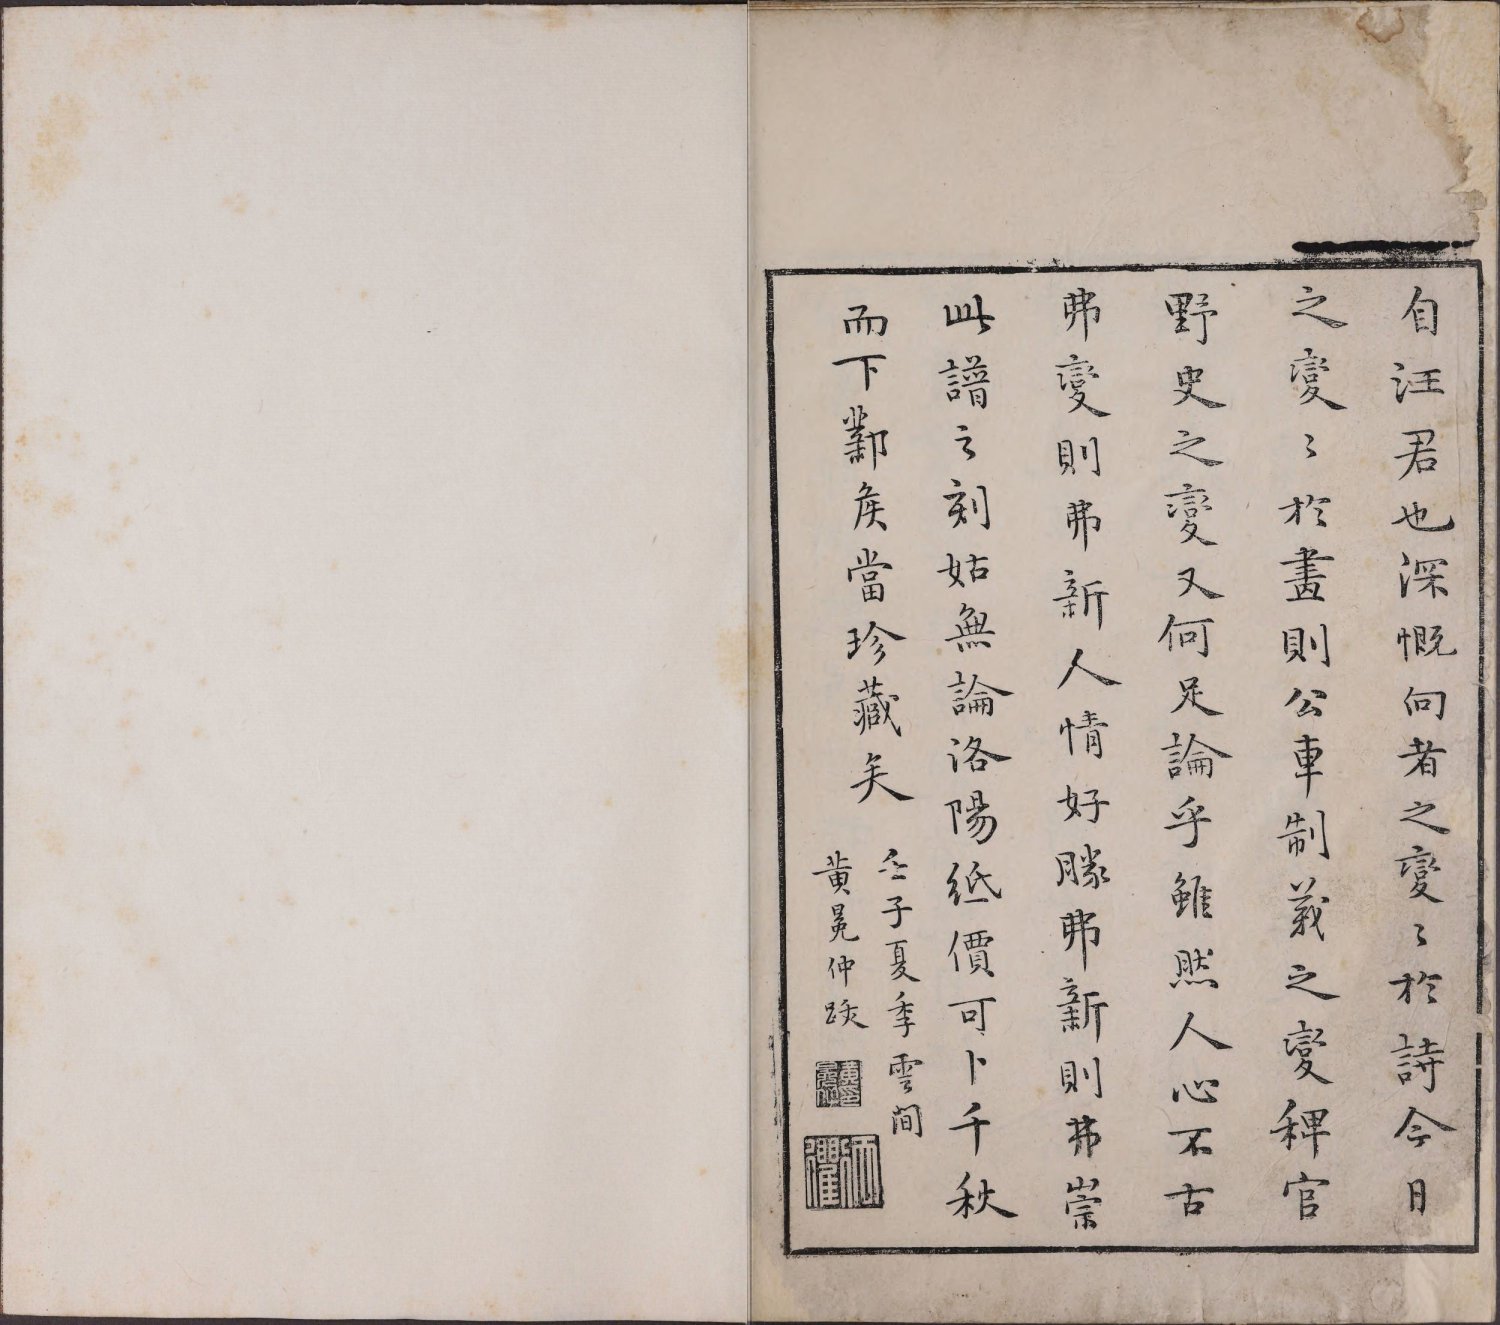 自汪君也深慨向者之變〻於詩今日
之變〻於畫則公車制義之變稗官
野史之變又何足論乎雖然人心不古
弗變則弗新人情好勝弗新則弗崇
此譜之刻姑無論洛陽紙價可卜千秋
而下鄴矦當珍藏矣
壬子夏季雲間
黃冕仲䟦